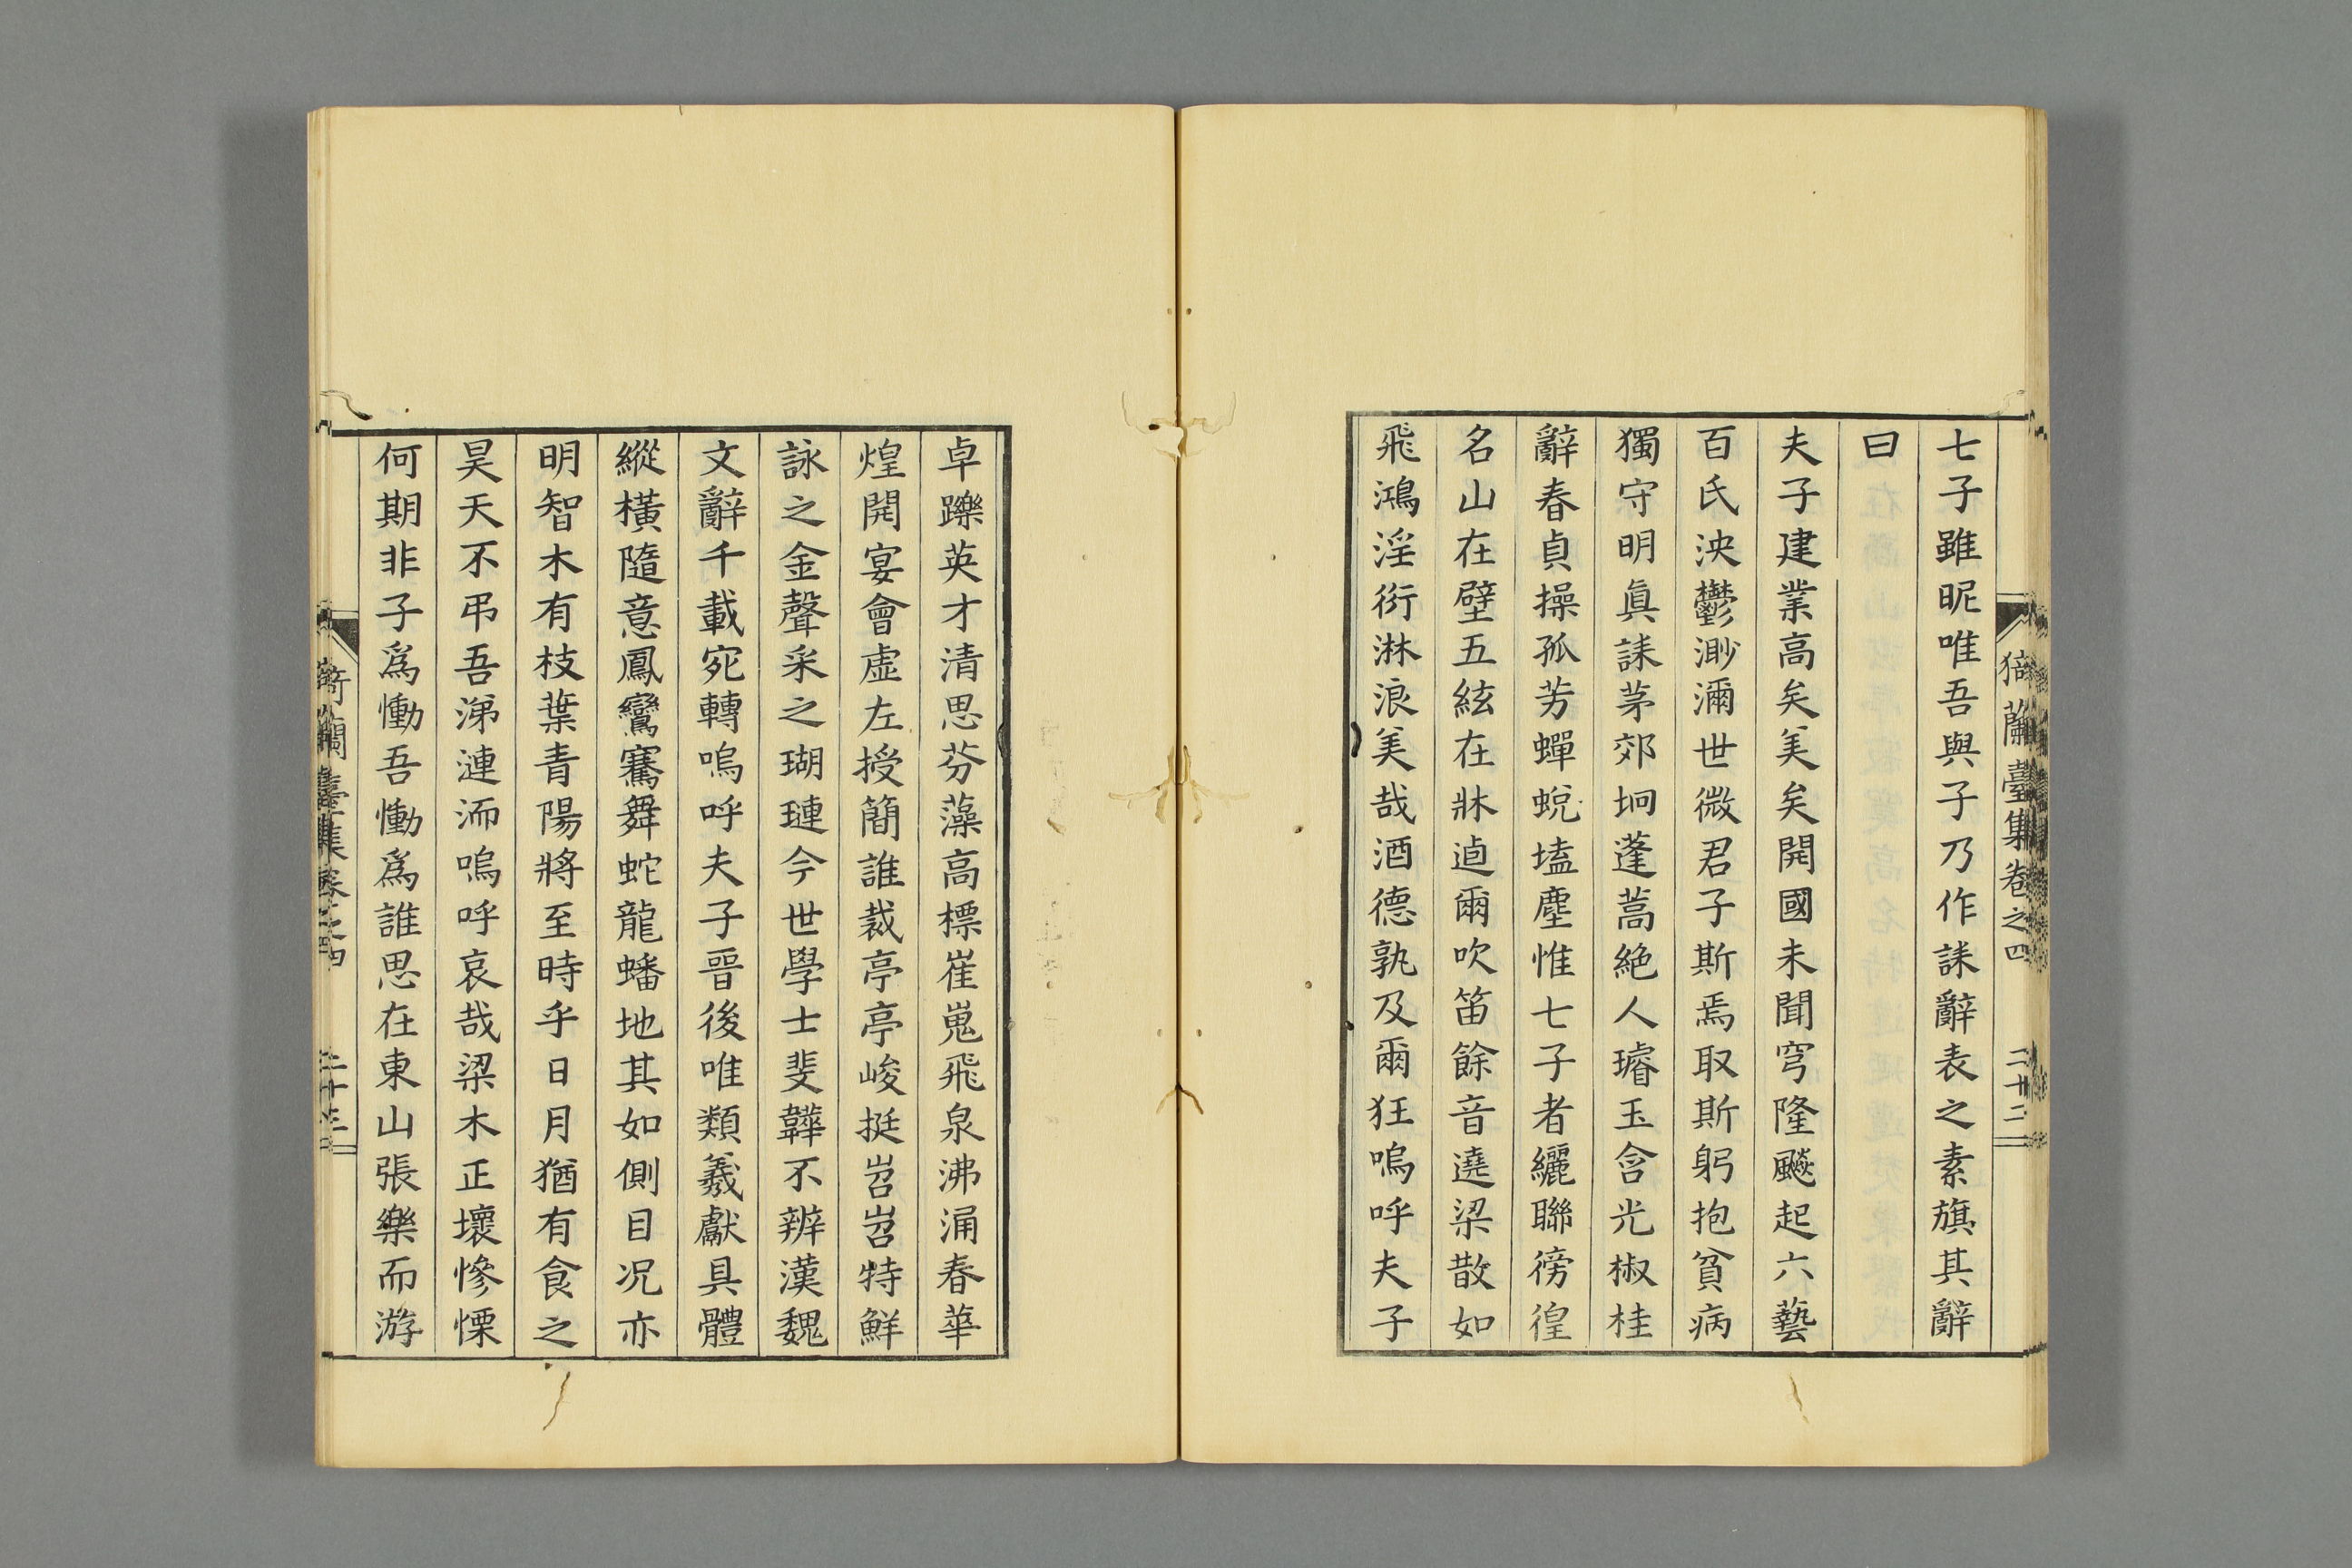 猗蘭臺集卷之四 二十二
七子雖昵唯吾與子乃作誄辭表之素旗其辭
曰
夫子建業高矣美矣開國未聞穹隆飈起六藝
百氏泱鬱渺瀰世微君子斯焉取斯躬抱貧病
獨守明眞誄茅郊坰蓬蒿絶人璿玉含光椒桂
辭春貞操孤芳蟬蛻壒塵惟七子者纚聯徬徨
名山在壁五絃在牀逌爾吹笛餘音遶梁散如
飛鴻淫衍淋浪美哉酒德孰及爾狂嗚呼夫子
卓躒英才清思芬藻高標崔嵬飛泉沸涌春華
煌開宴會虛左授簡誰裁亭亭峻挺岧岧特鮮
詠之金聲采之瑚璉今世學士斐韡不辨漢魏
文辭千載宛轉嗚呼夫子晉後唯類羲獻具體
縱橫隨意鳳鸞騫舞蛇龍蟠地其如側目况亦
明智木有枝葉青陽將至時乎日月猶有食之
昊天不弔吾涕漣洏嗚呼哀哉梁木正壞慘慄
何期非子爲慟吾慟爲誰思在東山張樂而游
猗蘭臺集卷之四 二十三